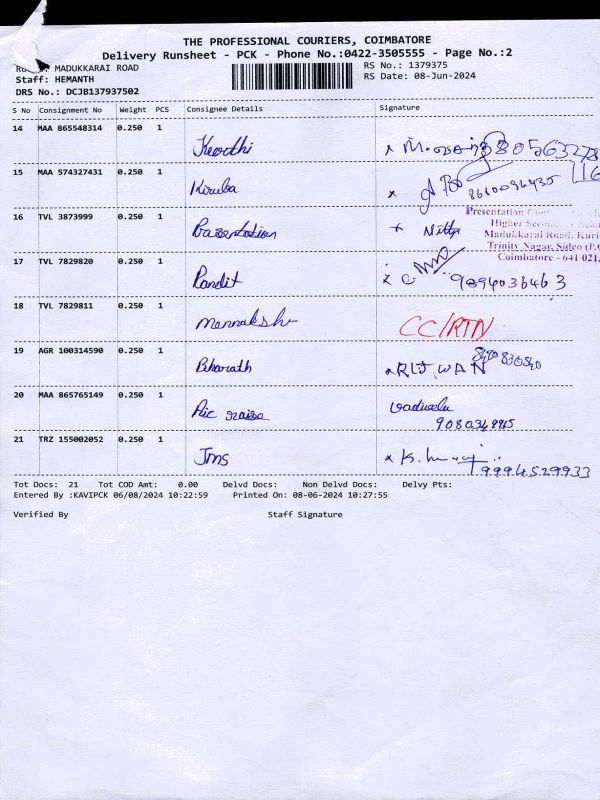 THE PROFESSIONAL COURIERS, COIMBATORE
Delivery Runsheet - PCK - Phone No.:0422-3505555 - Page No.:2
MADUKKARAI ROAD
RS No.: 1379375
Staff: HEMANTH
RS Date: 08-Jun-2024
DRS No.: DCJB137937502
S No Consignment No Weight PCS Consignee Details Signature
14 MAA 865548314 0.250 1 Keerthi
15 MAA 574327431 0.250 1 Kiruba 8610094435
16 TVL 3873999 0.250 1 Presentation Nithya
Presentation
Higher
Madukkarai Road,
Trinity Nagar, Sidco
Coimbatore - 641 021.
17 TVL 7829820 0.250 1 Pandit 9894036463
18 TVL 7829811 0.250 1 CC/RTN
19 AGR 100314590 0.250 1 Bharath RIJWAN
20 MAA 865765149 0.250 1 Vadivelu
21 TRZ 155002052 0.250 1 Jms 9994529933
Tot Docs: 21 Tot COD Amt: 0.00 Delvd Docs: Non Delvd Docs: Delvy Pts:
Entered By :KAVIPCK 06/08/2024 10:22:59 Printed On: 08-06-2024 10:27:55
Verified By Staff Signature